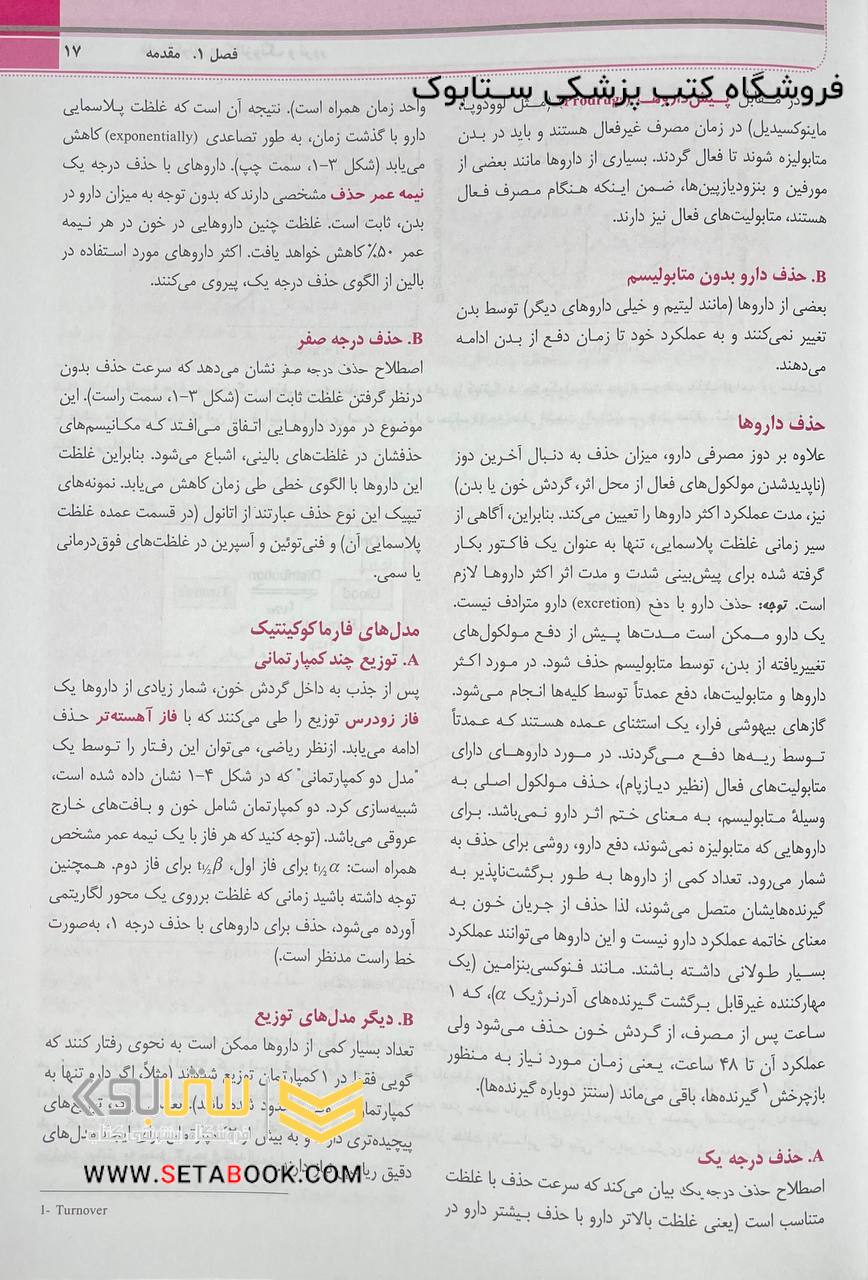 فصل ۱. مقدمه ۱۷
فروشگاه کتب پزشکی ستابوک
در مقابل پیش‌داروها (Prodrug) (مثل لوودوپا،
ماینوکسیدیل) در زمان مصرف غیرفعال هستند و باید در بدن
متابولیزه شوند تا فعال گردند. بسیاری از داروها مانند بعضی از
مورفین و بنزودیازپین‌ها، ضمن اینکه هنگام مصرف فعال
هستند، متابولیت‌های فعال نیز دارند.
B. حذف دارو بدون متابولیسم
بعضی از داروها (مانند لیتیم و خیلی داروهای دیگر) توسط بدن
تغییر نمی‌کنند و به عملکرد خود تا زمان دفع از بدن ادامه
می‌دهند.
حذف داروها
علاوه بر دوز مصرفی دارو، میزان حذف به دنبال آخرین دوز
(ناپدیدشدن مولکول‌های فعال از محل اثر، گردش خون یا بدن)
نیز، مدت عملکرد اکثر داروها را تعیین می‌کند. بنابراین، آگاهی از
سیر زمانی غلظت پلاسمایی، تنها به عنوان یک فاکتور بکار
گرفته شده برای پیش‌بینی شدت و مدت اثر اکثر داروها لازم
است. توجه: حذف دارو با دفع (excretion) دارو مترادف نیست.
یک دارو ممکن است مدت‌ها پیش از دفع مولکول‌های
تغییریافته از بدن، توسط متابولیسم حذف شود. در مورد اکثر
داروها و متابولیت‌ها، دفع عمدتاً توسط کلیه‌ها انجام می‌شود.
گازهای بیهوشی فرار، یک استثنای عمده هستند که عمدتاً
توسط ریه‌ها دفع می‌گردند. در مورد داروهای دارای
متابولیت‌های فعال (نظیر دیازپام)، حذف مولکول اصلی به
وسیلهٔ متابولیسم، به معنای ختم اثر دارو نمی‌باشد. برای
داروهایی که متابولیزه نمی‌شوند، دفع دارو، روشی برای حذف به
شمار می‌رود. تعداد کمی از داروها به طور برگشت‌ناپذیر به
گیرنده‌هایشان متصل می‌شوند، لذا حذف از جریان خون به
معنای خاتمه عملکرد دارو نیست و این داروها می‌توانند عملکرد
بسیار طولانی داشته باشند. مانند فنوکسی‌بنزامین (یک
مهارکننده غیرقابل برگشت گیرنده‌های آدرنرژیک α)، که ۱
ساعت پس از مصرف، از گردش خون حذف می‌شود ولی
عملکرد آن تا ۴۸ ساعت، یعنی زمان مورد نیاز به منظور
بازچرخش۱ گیرنده‌ها، باقی می‌ماند (سنتز دوباره گیرنده‌ها).
A. حذف درجه یک
اصطلاح حذف درجه یک بیان می‌کند که سرعت حذف با غلظت
متناسب است (یعنی غلظت بالاتر دارو با حذف بیشتر دارو در
واحد زمان همراه است). نتیجه آن است که غلظت پلاسمایی
دارو با گذشت زمان، به طور تصاعدی (exponentially) کاهش
می‌یابد (شکل ۳-۱، سمت چپ). داروهای با حذف درجه یک
نیمه عمر حذف مشخصی دارند که بدون توجه به میزان دارو در
بدن، ثابت است. غلظت چنین داروهایی در خون در هر نیمه
عمر ۵۰٪ کاهش خواهد یافت. اکثر داروهای مورد استفاده در
بالین از الگوی حذف درجه یک، پیروی می‌کنند.
B. حذف درجه صفر
اصطلاح حذف درجه صفر نشان می‌دهد که سرعت حذف بدون
درنظر گرفتن غلظت ثابت است (شکل ۳-۱، سمت راست). این
موضوع در مورد داروهایی اتفاق می‌افتد که مکانیسم‌های
حذفشان در غلظت‌های بالینی، اشباع می‌شود. بنابراین غلظت
این داروها با الگوی خطی طی زمان کاهش می‌یابد. نمونه‌های
تیپیک این نوع حذف عبارتند از اتانول (در قسمت عمده غلظت
پلاسمایی آن) و فنی‌توئین و آسپرین در غلظت‌های فوق‌درمانی
یا سمی.
مدل‌های فارماکوکینتیک
A. توزیع چند کمپارتمانی
پس از جذب به داخل گردش خون، شمار زیادی از داروها یک
فاز زودرس توزیع را طی می‌کنند که با فاز آهسته‌تر حذف
ادامه می‌یابد. ازنظر ریاضی، می‌توان این رفتار را توسط یک
"مدل دو کمپارتمانی" که در شکل ۴-۱ نشان داده شده است،
شبیه‌سازی کرد. دو کمپارتمان شامل خون و بافت‌های خارج
عروقی می‌باشد. (توجه کنید که هر فاز با یک نیمه عمر مشخص
همراه است: t½α برای فاز اول، t½β برای فاز دوم. همچنین
توجه داشته باشید زمانی که غلظت برروی یک محور لگاریتمی
آورده می‌شود، حذف برای داروهای با حذف درجه ۱، به‌صورت
خط راست مدنظر است.)
B. دیگر مدل‌های توزیع
تعداد بسیار کمی از داروها ممکن است به نحوی رفتار کنند که
گویی فقط در ۱ کمپارتمان توزیع شده‌اند (مثلاً، اگر دارو تنها به
کمپارتمان محدود شده باشد).
پیچیده‌تری دارند و به بیش از ۲ کمپارتمان برای ایجاد مدل‌های
دقیق ریاضی نیاز دارند.
ستابوک
فروشگاه اینترنتی کتاب
WWW.SETABOOK.COM
1- Turnover